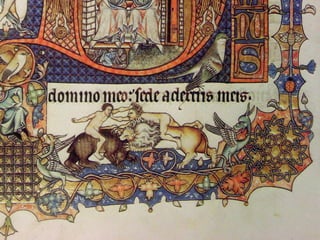 domino meo: sede a dextris meis.